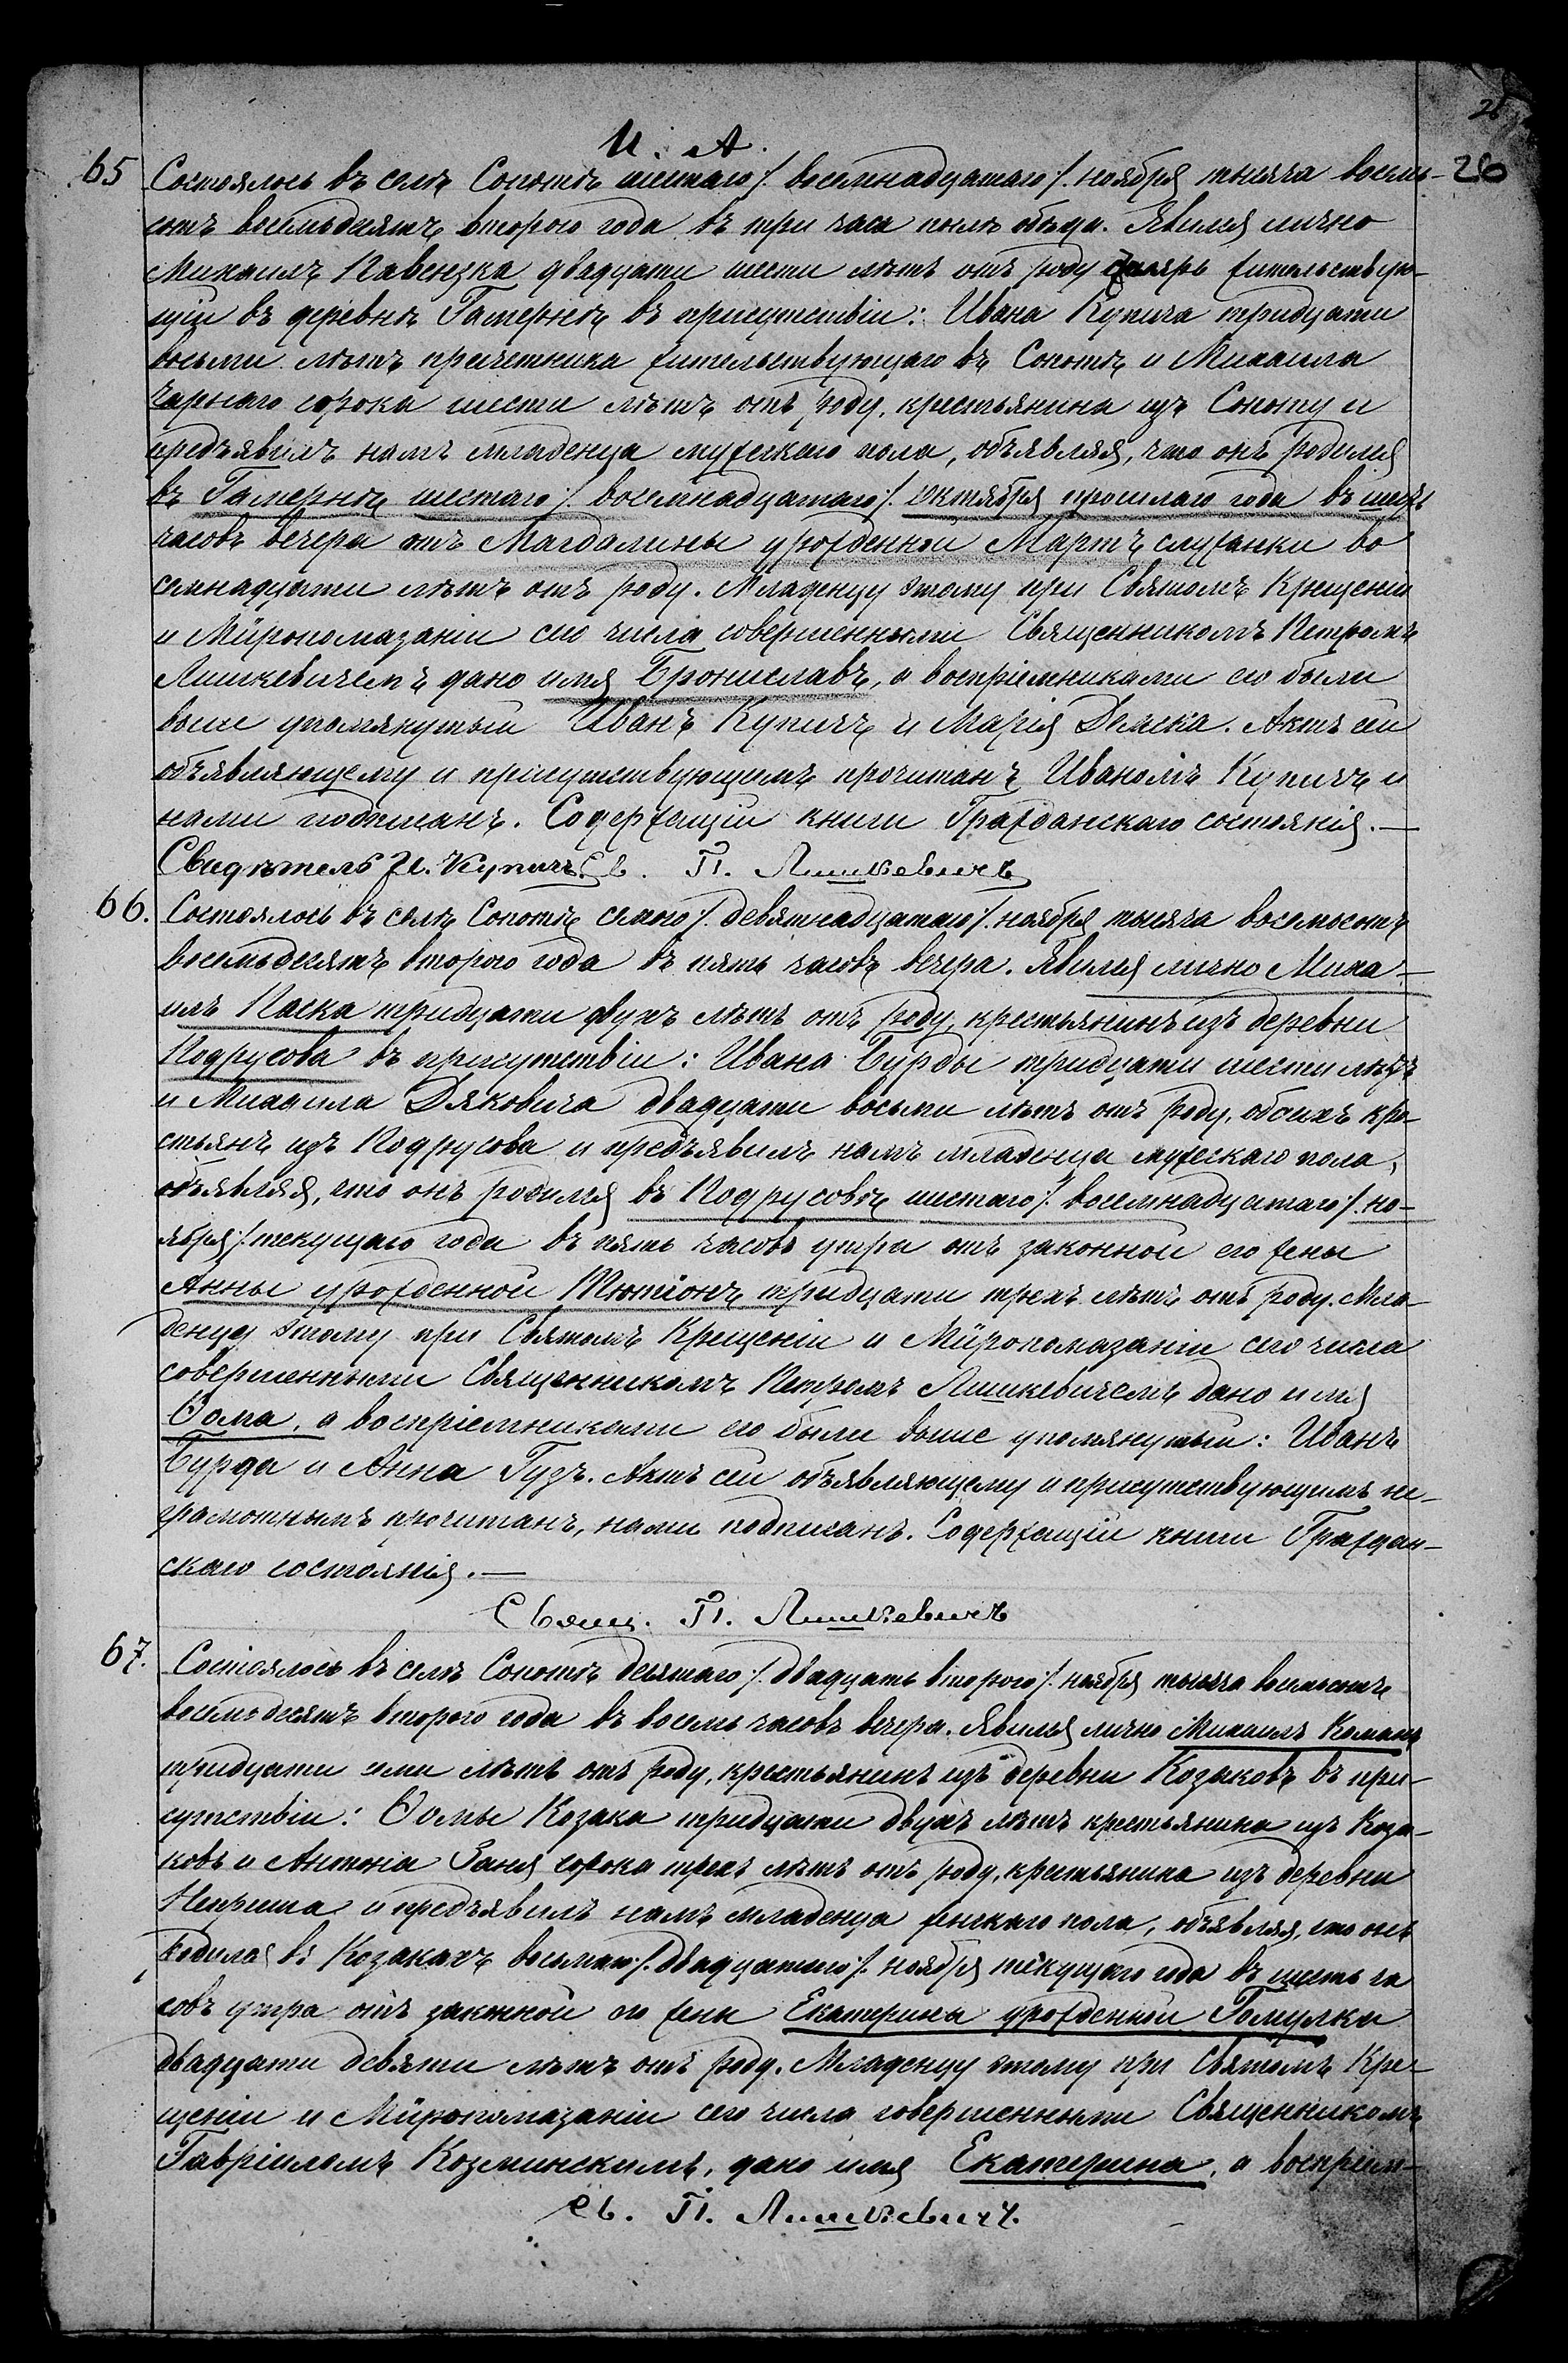 25
И. А.
26
65 Состоялось въ селѣ Сопотѣ шестаго /: восемнадцатаго /: ноября тысяча восемь-
сотъ восемьдесятъ второго года въ три часа послѣ обѣда. Явился лично
Михаилъ Павензка двадцати шести лѣтъ отъ роду жительствую-
щій въ деревнѣ Гамернѣ въ присутствіи: Ивана Купича тридцати
восьми лѣтъ причетника жительствующаго въ Сопотѣ и Михаила
Чарнаго сорока шести лѣтъ отъ роду, крестьянина изъ Сопоту и
предъявилъ намъ младенца мужескаго пола, объявляя, что онъ родился
въ Гамернѣ шестаго /: восемнадцатаго /: октября прошлаго года въ шесть
часовъ вечера отъ Магдалины урожденной Мартъ служанки во
семнадцати лѣтъ отъ роду. Младенцу этому при Святомъ Крещеніи
и Мѵропомазаніи сего числа совершенными Священникомъ Петромъ
Лишкевичемъ дано имя Брониславъ, а воспріемниками его были
выше упомянутый Иванъ Купичъ и Марія Деяска. Актъ сей
объявляющему и присутствующимъ прочитанъ Иваномъ Купичъ и
нами подписанъ. Содержащій книги Гражданскаго состоянія.—
Свидѣтель И. Купичъ. Св. П. Лишкевичъ
66. Состоялось въ селѣ Сопотѣ семаго /: девятнадцатаго /: ноября тысяча восемьсотъ
восемьдесятъ второго года въ пять часовъ вечера. Явился лично Миха-
илъ Паска тридцати двухъ лѣтъ отъ роду, крестьянинъ изъ деревни
Подрусова въ присутствіи: Ивана Бурды тридцати шести лѣтъ
и Михаила Дяковича двадцати восьми лѣтъ отъ роду, обоихъ кре-
стьянъ изъ Подрусова и предъявилъ намъ младенца мужескаго пола,
объявляя, что онъ родился въ Подрусовѣ шестаго /: восемнадцатаго /: но-
ября /: текущаго года въ пять часовъ утра отъ законной его жены
Анны урожденной Тютіонъ тридцати трехъ лѣтъ отъ роду. Мла-
денцу этому при Святомъ Крещеніи и Мѵропомазаніи сего числа
совершенными Священникомъ Петромъ Лишкевичемъ дано имя
Ѳома, а воспріемниками его были выше упомянутый: Иванъ
Бурда и Анна Гузъ. Актъ сей объявляющему и присутствующимъ не-
грамотнымъ прочитанъ, нами подписанъ. Содержащій книги Граждан-
скаго состоянія.—
Свящ. П. Лишкевичъ
67. Состоялось въ селѣ Сопотѣ десятаго /: двадцать второго /: ноября тысяча восемьсотъ
восемьдесятъ второго года въ восемь часовъ вечера. Явился лично Михаилъ Команъ
тридцати семи лѣтъ отъ роду, крестьянинъ изъ деревни Козаковъ въ при-
сутствіи: Ѳомы Козака тридцати двухъ лѣтъ крестьянина изъ Коза-
ковъ и Антона Заня сорока трехъ лѣтъ отъ роду, крестьянина изъ деревни
Неприша и предъявилъ намъ младенца женскаго пола, объявляя, что онъ
родился въ Козакахъ восьмаго /: двадцатаго /: ноября текущаго года въ шесть ча
совъ утра отъ законной его жены Екатерины урожденной Гомулки
двадцати девяти лѣтъ отъ роду. Младенцу этому при Святомъ Кре-
щеніи и Мѵропомазаніи сего числа совершенными Священникомъ
Гавріиломъ Козминскимъ, дано имя Екатерина, а воспріем-
Св. П. Лишкевичъ.